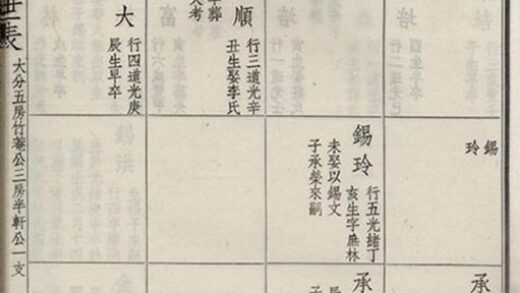 錫玲
錫玲
行五光緒丁
亥生字蔗林
未娶以錫文
子承榮來嗣
承
承
順
行三道光辛
丑生娶李氏
葬
大考
大
行四道光庚
辰生早卒
世表
大分五房竹菴公三房半軒公一支